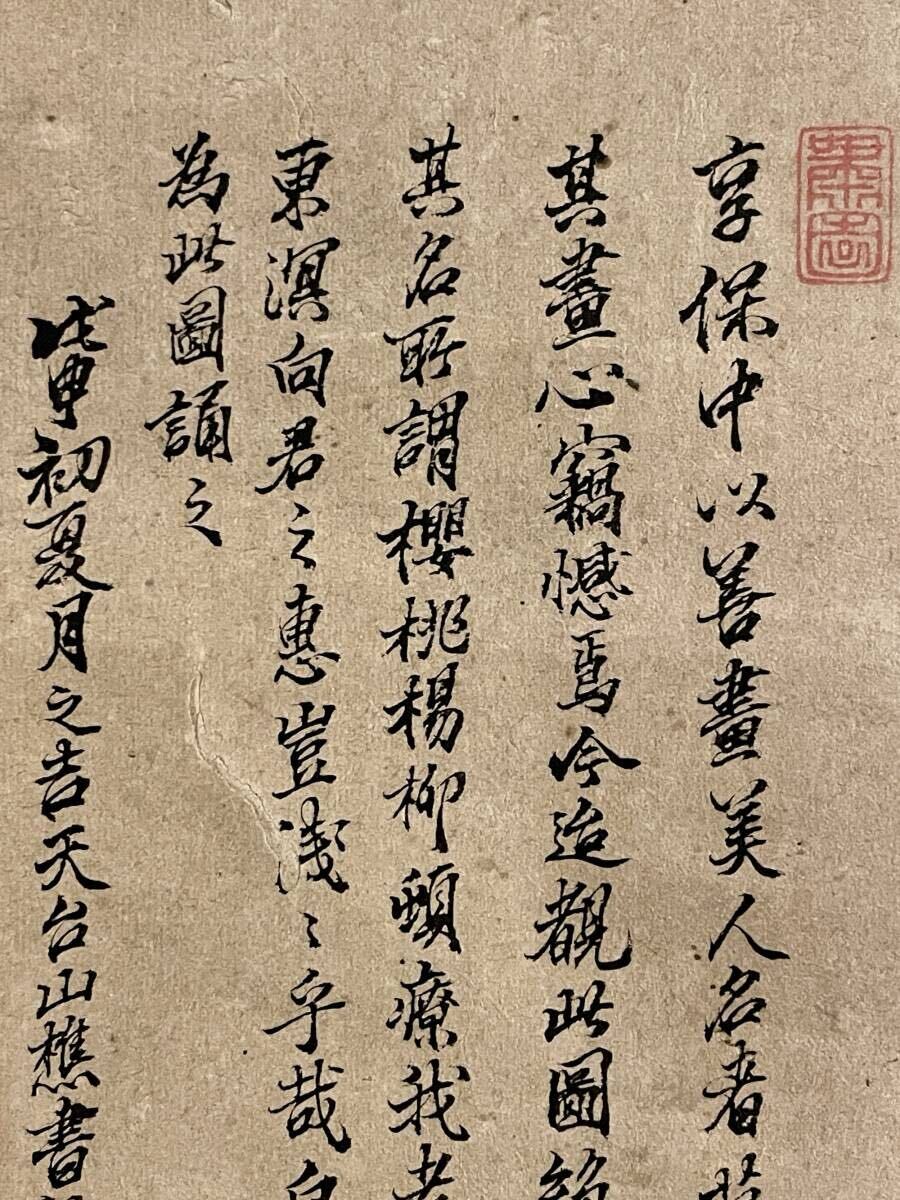 享保中以善畫美人名者
其畫心竊憾焉今迨覩此圖
其名所謂櫻桃楊柳頓療我
東溟向君之惠豈淺〻乎哉
為此圖誦之
戊申初夏月之吉天台山樵書